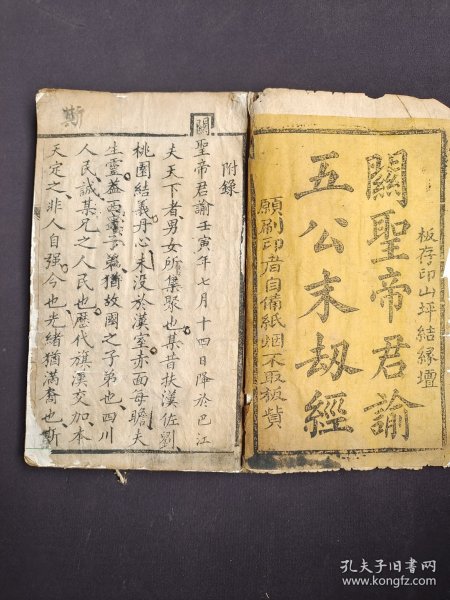 板存印山坪結緣壇
關聖帝君諭
五公末刼經
願刷印者自備紙烟不取板貲
附錄
關聖帝君諭壬寅年七月十四日降於巴江
夫天下者男女所集聚也某昔扶漢佐劉
桃園結義丹心未没於漢室赤面毎瞻夫
生靈蓋西蜀子弟猶故國之子弟也四川
人民誠某兄之人民也歷代旗漢交加本
天定之非人自强今也光緒猶滿裔也斯
斯
孔夫子旧书网
www.kongfz.com